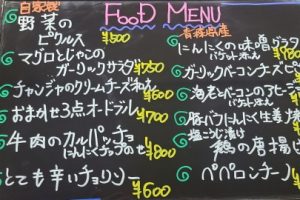 FOOD MENU
自家製
野菜の
ピクルス ¥500
マグロとじゃこの
ガーリックサラダ ¥750
チャンジャのクリームチーズ和え ¥600
おまかせ3点オードブル ¥700
牛肉のカルパッチョ
にんにくチップのせ ¥800
とても辛いチョリソー ¥600
青森県産
にんにくの味噌グラ
バケット添え ¥980
ガーリックベーコンチーズピ
海老とベーコンのアヒージ
バケット添え
豚バラにんにく生姜焼
塩こうじ漬け
鶏の唐揚げ
ペペロンチーノ